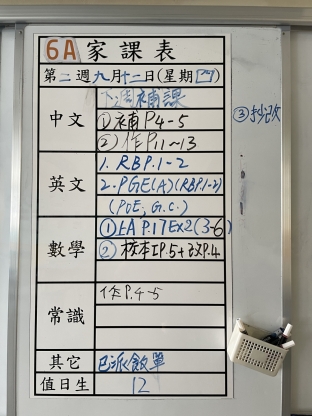 6A 家課表
第二週九月十二日(星期四)
下週補課
中文 ①補P4-5
②作P.11~13
③抄改
英文 1. RBP.1-2
2. PGE(A)(RBP.1-2)
(POE, G.C.)
數學 ①上A P.17Ex2(3-6)
②校本工P.5+改P.4
常識 作P.4-5
其它 已派斂單
值日生 12